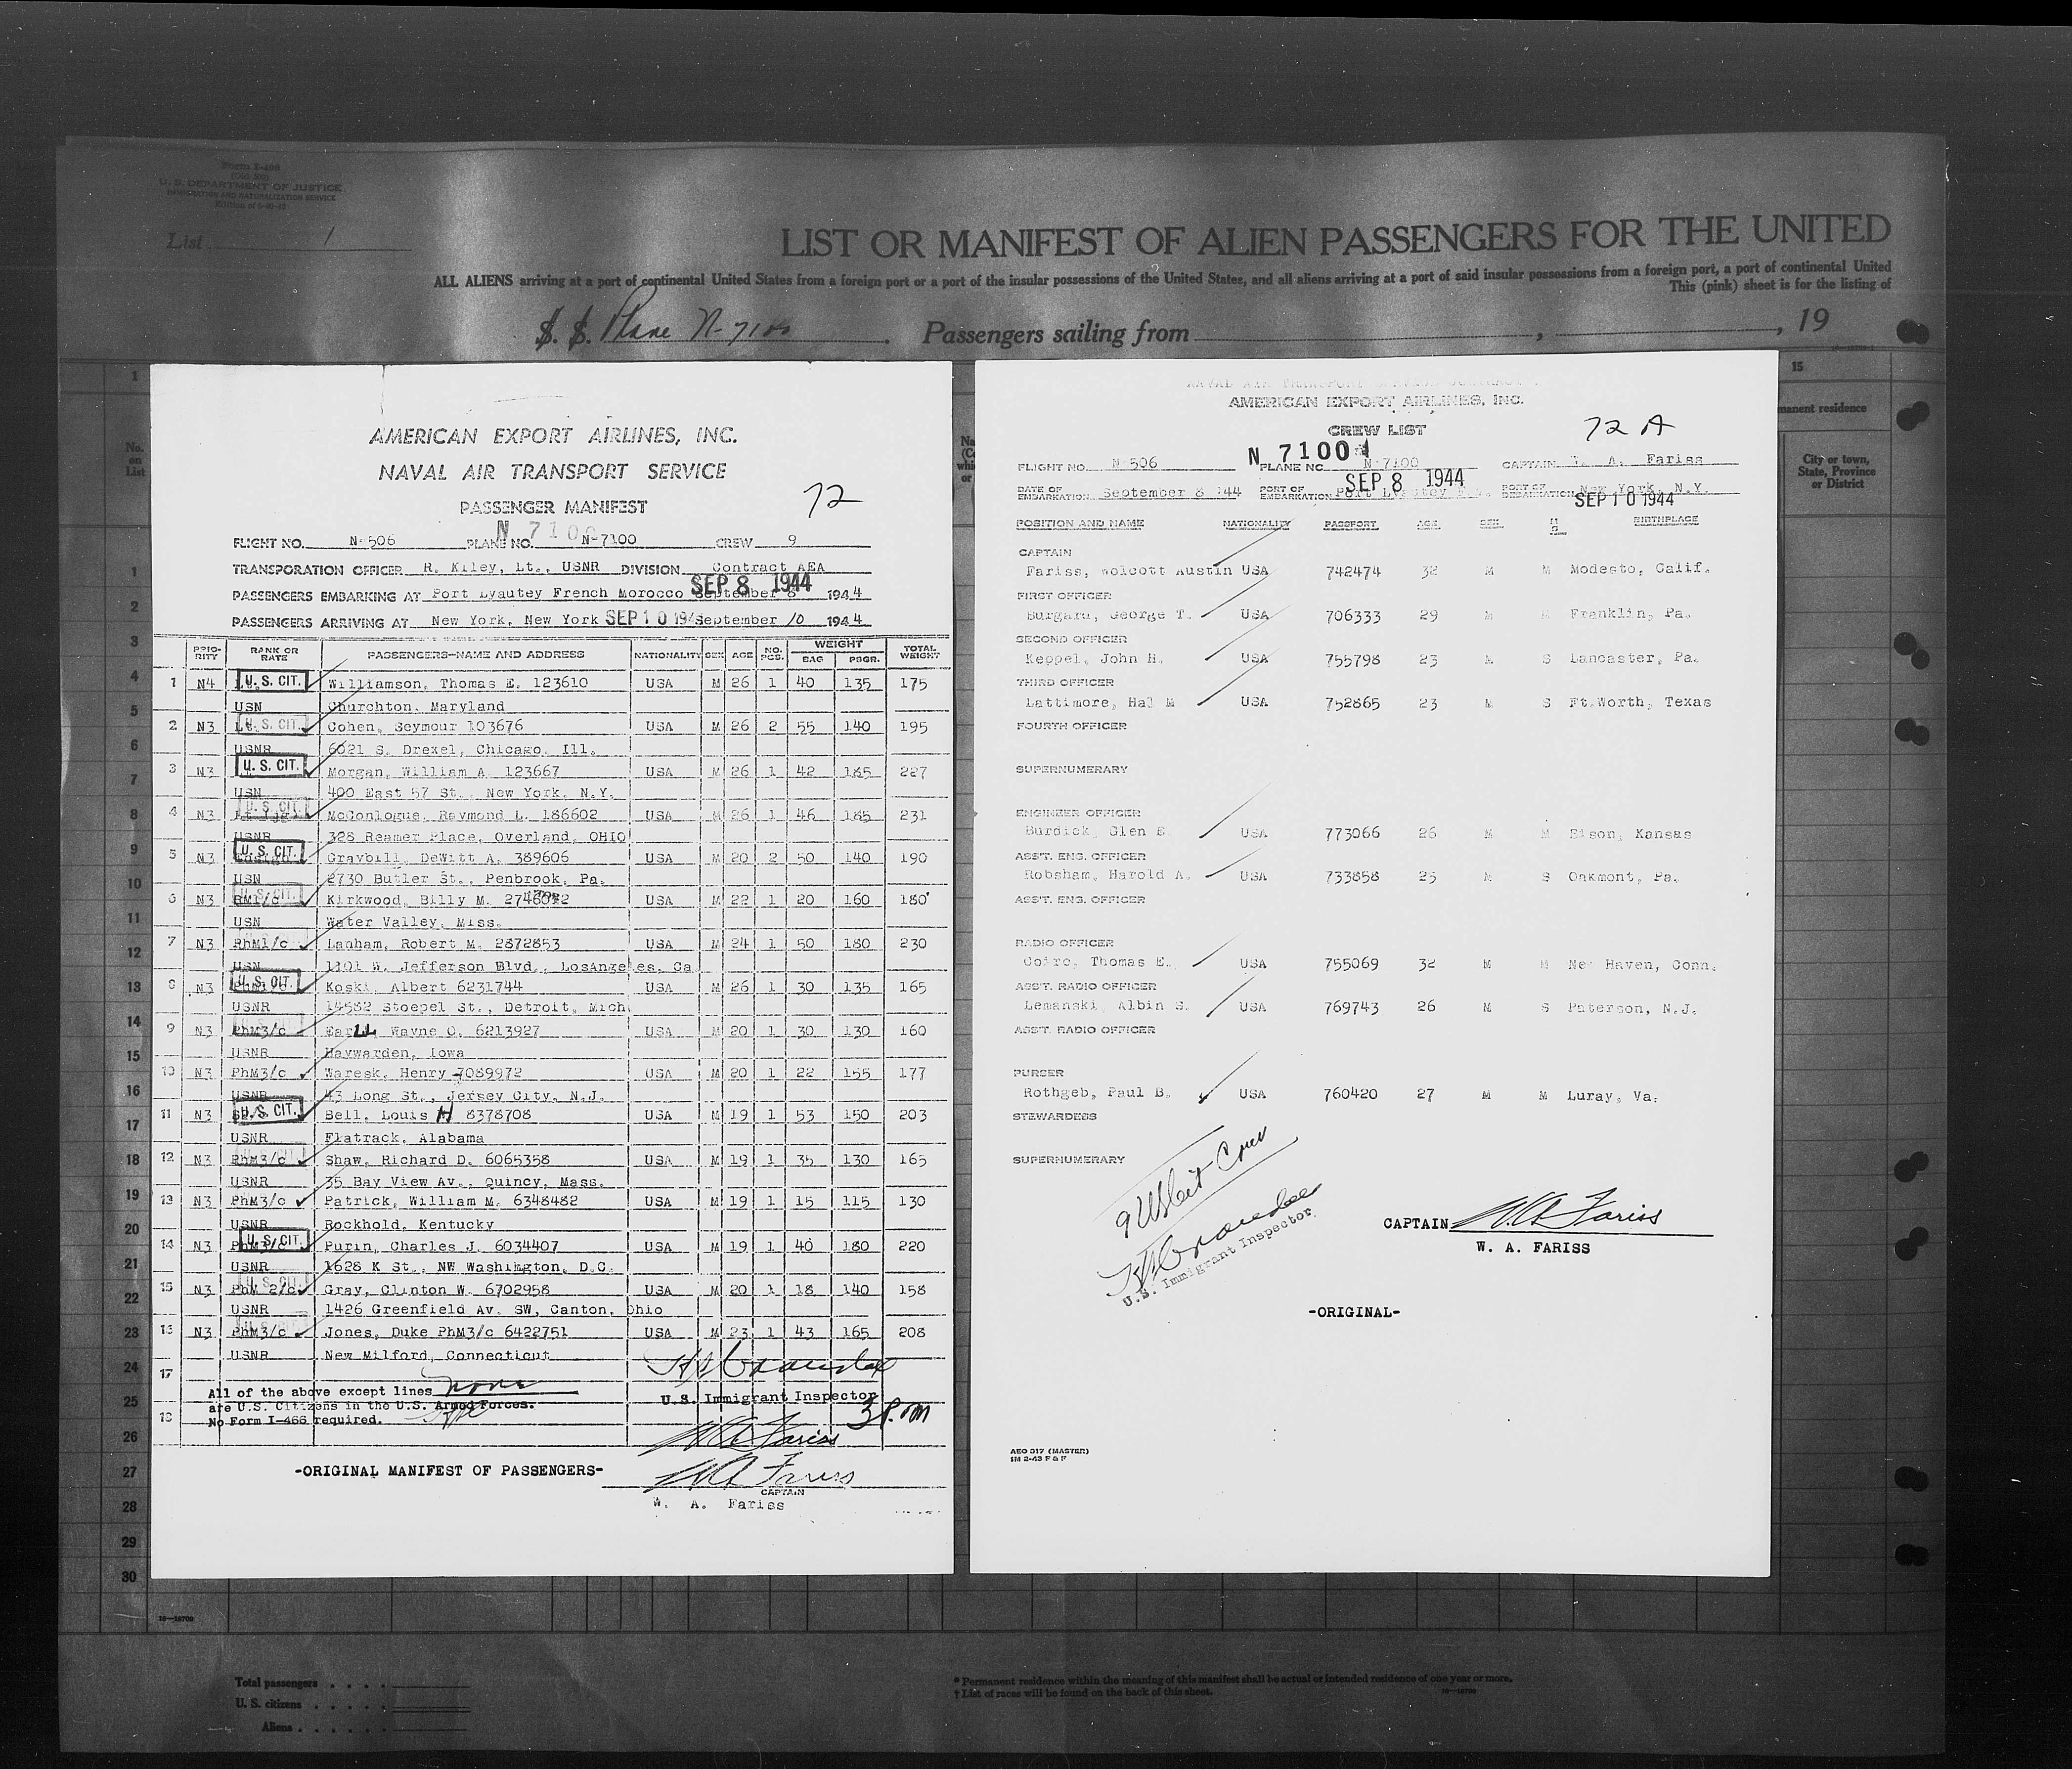 Form I-400
(Old 500)
U. S. DEPARTMENT OF JUSTICE
IMMIGRATION AND NATURALIZATION SERVICE
List 1
LIST OR MANIFEST OF ALIEN PASSENGERS FOR THE UNITED
ALL ALIENS arriving at a port of continental United States from a foreign port or a port of the insular possessions of the United States, and all aliens arriving at a port of said insular possessions from a foreign port, a port of continental United
This (pink) sheet is for the listing of
S. S. Plane N-7100. Passengers sailing from , , 19
AMERICAN EXPORT AIRLINES, INC.
NAVAL AIR TRANSPORT SERVICE
PASSENGER MANIFEST
72
N 7100
FLIGHT NO. N-506 PLANE NO. N-7100 CREW 9
TRANSPORATION OFFICER R. Kiley, Lt., USNR DIVISION Contract AEA
SEP 8 1944
PASSENGERS EMBARKING AT Port Lyautey French Morocco September 8 1944
PASSENGERS ARRIVING AT New York, New York SEP 10 194 September 10 1944
PRIORITY RANK OR RATE PASSENGERS-NAME AND ADDRESS NATIONALITY SEX AGE NO. PCS. WEIGHT BAG PSGR. TOTAL WEIGHT
1 N4 U. S. CIT. Williamson, Thomas E. 123610 USA M 26 1 40 135 175
USN Churchton, Maryland
2 N3 U. S. CIT. Cohen, Seymour 103676 USA M 26 2 55 140 195
USNR 6021 S. Drexel, Chicago, Ill.
3 N3 U. S. CIT. Morgan, William A. 123667 USA M 26 1 42 185 227
USN 400 East 57 St., New York, N.Y.
4 N3 U. S. CIT. McConlogue, Raymond L. 186602 USA M 26 1 46 185 231
USNR 328 Reamer Place, Overland, OHIO
5 N3 U. S. CIT. Graybill, DeWitt A. 389606 USA M 20 2 50 140 190
USN 2730 Butler St., Penbrook, Pa.
6 N3 RM1/c U. S. CIT. Kirkwood, Billy M. USA M 22 1 20 160 180
USN Water Valley, Miss.
7 N3 PhM1/c Lanham, Robert M. 2872853 USA M 24 1 50 180 230
USN 1301 W. Jefferson Blvd., LosAngeles, Ca
8 N3 U. S. CIT. Koski, Albert 6231744 USA M 26 1 30 135 165
USNR 14582 Stoepel St., Detroit, Mich
9 N3 PhM3/c Earll Wayne O. 6213927 USA M 20 1 30 130 160
USNR Haywarden, Iowa
10 N3 PhM3/c Waresk, Henry 7089972 USA M 20 1 22 155 177
USNR 43 Long St., Jersey City, N.J.
11 N3 U. S. CIT. Bell, Louis H 8378708 USA M 19 1 53 150 203
USNR Flatrack, Alabama
12 N3 PhM3/c Shaw, Richard D. 6065358 USA M 19 1 35 130 165
USNR 35 Bay View Av., Quincy, Mass.
13 N3 PhM3/c Patrick, William M. 6348482 USA M 19 1 15 115 130
USNR Rockhold, Kentucky
14 N3 PhM3/c U. S. CIT. Purin, Charles J. 6034407 USA M 19 1 40 180 220
USNR 1628 K St., NW Washington, D.C.
15 N3 PhM 2/c U. S. CIT. Gray, Clinton W. 6702958 USA M 20 1 18 140 158
USNR 1426 Greenfield Av. SW, Canton, Ohio
16 N3 PhM3/c Jones, Duke PhM3/c 6422751 USA M 23 1 43 165 208
USNR New Milford, Connecticut
17
All of the above except lines none
are U.S. Citizens in the U.S. Armed Forces.
No Form I-466 required.
18
U.S. Immigrant Inspector
3 P.m
W A Fariss
-ORIGINAL MANIFEST OF PASSENGERS-
W A Fariss
CAPTAIN
W. A. Fariss
NAVAL AIR TRANSPORT SERVICE CONTRACT
AMERICAN EXPORT AIRLINES, INC.
CREW LIST
72 A
N 7100
FLIGHT NO. N-506 PLANE NO. N-7100 CAPTAIN W. A. Fariss
SEP 8 1944
DATE OF EMBARKATION September 8 144 PORT OF EMBARKATION Port Lyautey PORT OF DEBARKATION New York, N.Y.
SEP 10 1944
POSITION AND NAME NATIONALITY PASSPORT AGE SEX M S BIRTHPLACE
CAPTAIN
Fariss, Wolcott Austin USA 742474 32 M M Modesto, Calif.
FIRST OFFICER
Burgard, George T. USA 706333 29 M M Franklin, Pa.
SECOND OFFICER
Keppel, John H. USA 755798 23 M S Lancaster, Pa.
THIRD OFFICER
Lattimore, Hal M USA 752865 23 M S Ft.Worth, Texas
FOURTH OFFICER
SUPERNUMERARY
ENGINEER OFFICER
Burdick, Glen E. USA 773066 26 M M Bison, Kansas
ASS'T. ENG. OFFICER
Robsham, Harold A. USA 733858 25 M S Oakmont, Pa.
ASS'T. ENG. OFFICER
RADIO OFFICER
Coiro, Thomas E. USA 755069 32 M M New Haven, Conn.
ASS'T. RADIO OFFICER
Lemanski, Albin S. USA 769743 26 M S Paterson, N.J.
ASS'T. RADIO OFFICER
PURSER
Rothgeb, Paul B. USA 760420 27 M M Luray, Va.
STEWARDESS
SUPERNUMERARY
9 US Cit Crew
U.S. Immigrant Inspector
CAPTAIN W A Fariss
W. A. FARISS
-ORIGINAL-
AEO 317 (MASTER)
1M 2-43 F & F
No. on List
1
2
3
4
5
6
7
8
9
10
11
12
13
14
15
16
17
18
19
20
21
22
23
24
25
26
27
28
29
30
15
manent residence
City or town, State, Province or District
16—18700
Total passengers
U. S. citizens
Aliens
* Permanent residence within the meaning of this manifest shall be actual or intended residence of one year or more.
† List of races will be found on the back of this sheet.